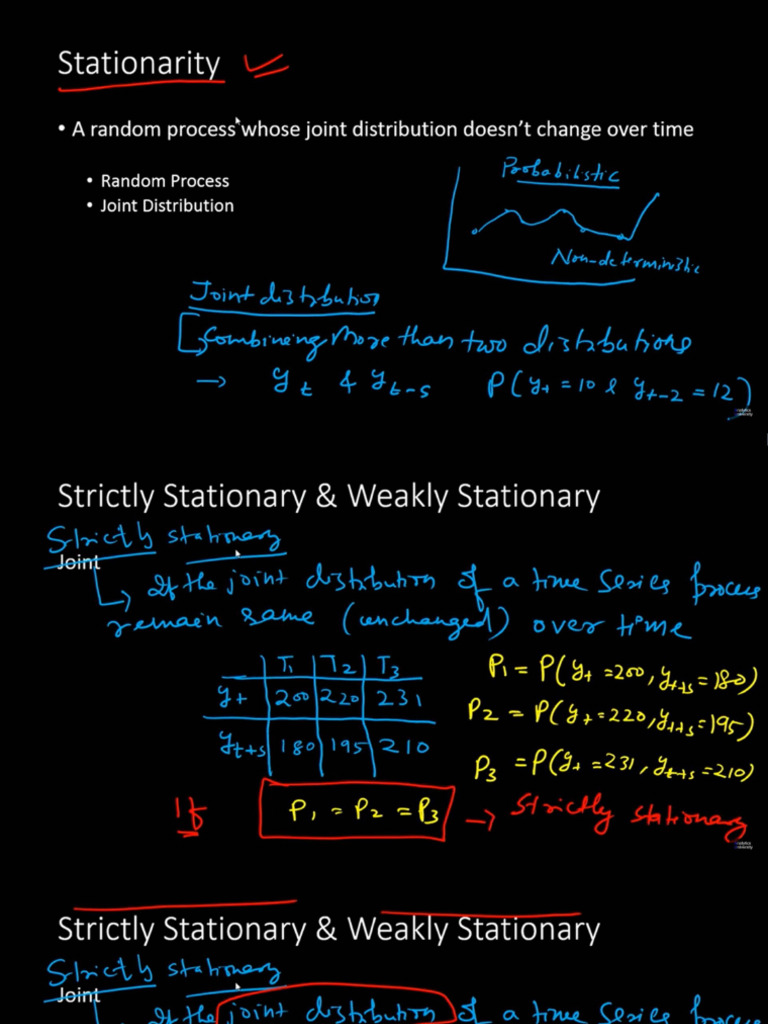 Stationarity
• A random process whose joint distribution doesn't change over time
• Random Process
• Joint Distribution
Probabilistic
Non-deterministic
Joint distribution
Combineing more than two distributions
→ yt & yt-s P(yt = 10 & yt-2 = 12)
Strictly Stationary & Weakly Stationary
Strictly stationary
Joint
If the joint distribution of a time series process
remain same (unchanged) over time
T1 T2 T3
yt 200 220 231
yt+s 180 195 210
P1 = P(yt = 200, yt+s = 180)
P2 = P(yt = 220, yt+s = 195)
P3 = P(yt = 231, yt+s = 210)
If P1 = P2 = P3 → Strictly stationary
Strictly Stationary & Weakly Stationary
Strictly stationary
Joint
If the joint distribution of a time series process